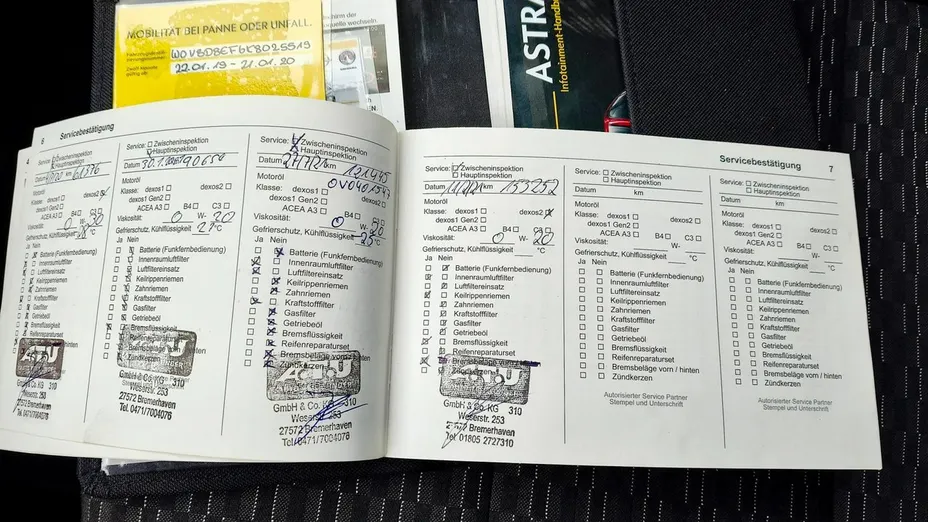 MOBILITÄT BEI PANNE ODER UNFALL.
W0VBD8EF6K8025519
22.01.19 - 21.01.20
wechseln.
ASTRA
Infotainment-Handb
6 Servicebestätigung
Service: Zwischeninspektion
Hauptinspektion
Datum km 61376
Motoröl
Klasse: dexos1 dexos2
dexos1 Gen2
ACEA A3 B4 C3
Viskosität: 0 W- 20
Gefrierschutz, Kühlflüssigkeit °C
Ja Nein
Batterie (Funkfernbedienung)
Innenraumluftfilter
Luftfiltereinsatz
Keilrippenriemen
Zahnriemen
Kraftstofffilter
Gasfilter
Getriebeöl
Bremsflüssigkeit
Reifenreparaturset
GmbH & Co. KG 310
Weserstr. 253
27572 Bremerhaven
Tel. 0471/7004076
Service: Zwischeninspektion
Hauptinspektion
Datum km 90650
Motoröl
Klasse: dexos1 dexos2
dexos1 Gen2
ACEA A3 B4 C3
Viskosität: 0 W- 20
Gefrierschutz, Kühlflüssigkeit °C
Ja Nein
Batterie (Funkfernbedienung)
Innenraumluftfilter
Luftfiltereinsatz
Keilrippenriemen
Zahnriemen
Kraftstofffilter
Gasfilter
Getriebeöl
Bremsflüssigkeit
Reifenreparaturset
Bremsbeläge vorn / hinten
Zündkerzen
A.T.U
GmbH & Co. KG 310
Weserstr. 253
27572 Bremerhaven
Tel. 0471/7004076
Service: Zwischeninspektion
Hauptinspektion
Datum km 121445
Motoröl
Klasse: dexos1
dexos1 Gen2
ACEA A3 B4 C3
Viskosität: 0 W- 20
Gefrierschutz, Kühlflüssigkeit 25 °C
Ja Nein
Batterie (Funkfernbedienung)
Innenraumluftfilter
Luftfiltereinsatz
Keilrippenriemen
Zahnriemen
Kraftstofffilter
Gasfilter
Getriebeöl
Bremsflüssigkeit
Reifenreparaturset
Bremsbeläge vorn / hinten
Zündkerzen
A.T.U
GmbH & Co. KG 310
Weserstr. 253
27572 Bremerhaven
Tel. 0471/7004076
Servicebestätigung 7
Service: Zwischeninspektion
Hauptinspektion
Datum km 153252
Motoröl
Klasse: dexos1 dexos2
dexos1 Gen2
ACEA A3 B4 C3
Viskosität: 0 W- 20
Gefrierschutz, Kühlflüssigkeit °C
Ja Nein
Batterie (Funkfernbedienung)
Innenraumluftfilter
Luftfiltereinsatz
Keilrippenriemen
Zahnriemen
Kraftstofffilter
Gasfilter
Getriebeöl
Bremsflüssigkeit
Reifenreparaturset
Bremsbeläge vorn / hinten
Zündkerzen
A.T.U
GmbH & Co. KG 310
Weserstr. 253
27572 Bremerhaven
Tel 01805 2727310
Service: Zwischeninspektion
Hauptinspektion
Datum km
Motoröl
Klasse: dexos1 dexos2
dexos1 Gen2
ACEA A3 B4 C3
Viskosität: W-
Gefrierschutz, Kühlflüssigkeit °C
Ja Nein
Batterie (Funkfernbedienung)
Innenraumluftfilter
Luftfiltereinsatz
Keilrippenriemen
Zahnriemen
Kraftstofffilter
Gasfilter
Getriebeöl
Bremsflüssigkeit
Reifenreparaturset
Bremsbeläge vorn / hinten
Zündkerzen
Autorisierter Service Partner
Stempel und Unterschrift
Service: Zwischeninspektion
Hauptinspektion
Datum km
Motoröl
Klasse: dexos1 dexos2
dexos1 Gen2
ACEA A3 B4 C3
Viskosität: W-
Gefrierschutz, Kühlflüssigkeit °C
Ja Nein
Batterie (Funkfernbedienung)
Innenraumluftfilter
Luftfiltereinsatz
Keilrippenriemen
Zahnriemen
Kraftstofffilter
Gasfilter
Getriebeöl
Bremsflüssigkeit
Reifenreparaturset
Bremsbeläge vorn / hinten
Zündkerzen
Autorisierter Service Partner
Stempel und Unterschrift